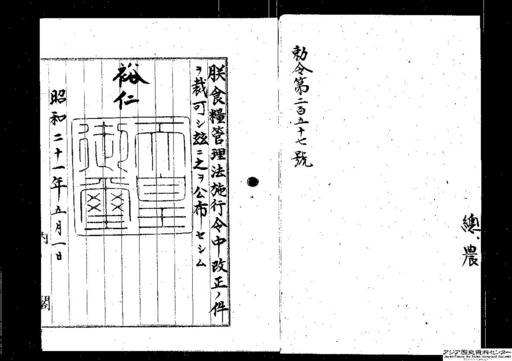 勅令第二百五十七號
總、農
朕食糧管理法施行令中改正ノ件
ヲ裁可シ玆ニ之ヲ公布セシム
裕仁
天皇御璽
昭和二十一年五月一日
内閣
アジア歴史資料センター